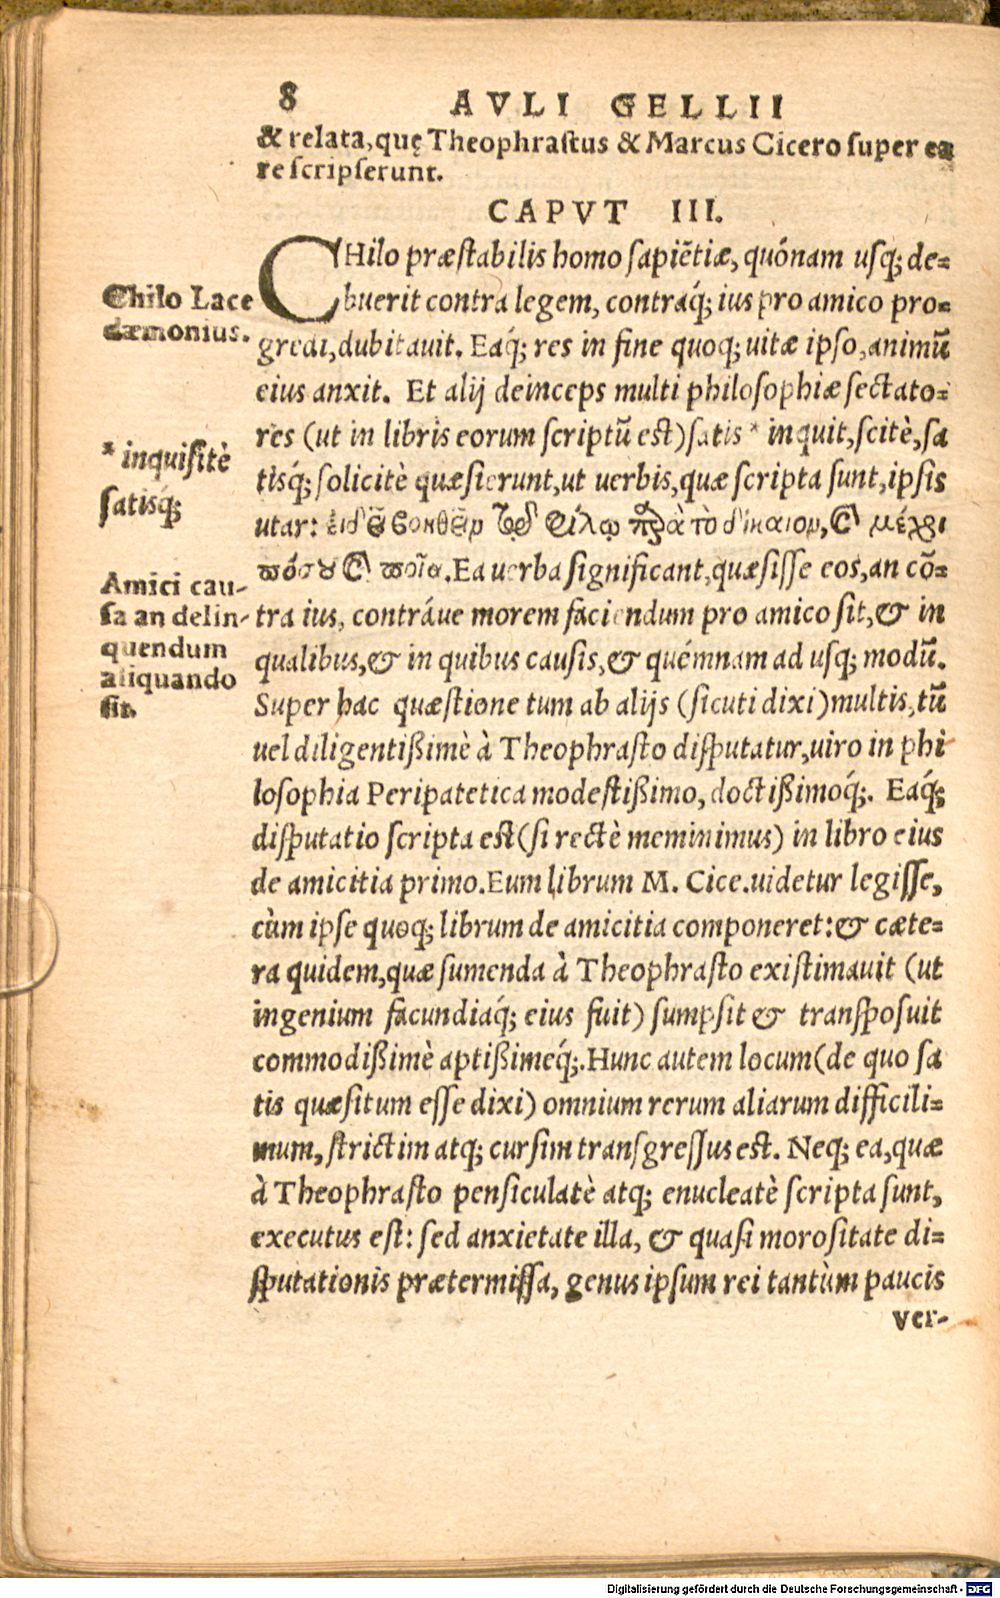 8 AVLI GELLII
& relata, quę Theophrastus & Marcus Cicero super ea
re scripserunt.
CAPVT III.
CHilo præstabilis homo sapiẽtiæ, quónam usq; de=
buerit contra legem, contraq́; ius pro amico pro=
gredi, dubitauit. Eaq́; res in fine quoq; uitæ ipso, animũ
eius anxit. Et alij deinceps multi philosophiæ sectato=
res (ut in libris eorum scriptũ est) satis * inquit, scitè, sa
tisq́; solicitè quæsierunt, ut uerbis, quæ scripta sunt, ipsis
utar: εἰ δεῖ βοηθεῖν τῷ φίλῳ παρὰ τὸ δίκαιον, καὶ μέχρι
πόσου καὶ ποῖα. Ea uerba significant, quæsisse eos, an cõ=
tra ius, contráue morem faciendum pro amico sit, & in
qualibus, & in quibus causis, & quémnam ad usq; modũ.
Super hac quæstione tum ab alijs (sicuti dixi) multis, tũ
uel diligentißimè à Theophrasto disputatur, uiro in phi
losophia Peripatetica modestißimo, doctißimoq́;. Eaq́;
disputatio scripta est (si rectè meminimus) in libro eius
de amicitia primo. Eum librum M. Cice. uidetur legisse,
cùm ipse quoq; librum de amicitia componeret: & cæte=
ra quidem, quæ sumenda à Theophrasto existimauit (ut
ingenium facundiaq́; eius fuit) sumpsit & transposuit
commodißimè aptißimeq́;. Hunc autem locum (de quo sa
tis quæsitum esse dixi) omnium rerum aliarum difficili=
mum, strictim atq; cursim transgressus est. Neq; ea, quæ
à Theophrasto pensiculatè atq; enucleatè scripta sunt,
executus est: sed anxietate illa, & quasi morositate di=
sputationis prætermissa, genus ipsum rei tantùm paucis
ver-
Chilo Lace
dæmonius.
* inquisitè
satisq́;
Amici cau-
sa an delin-
quendum
aliquando
sit.
Digitalisierung gefördert durch die Deutsche Forschungsgemeinschaft - DFG